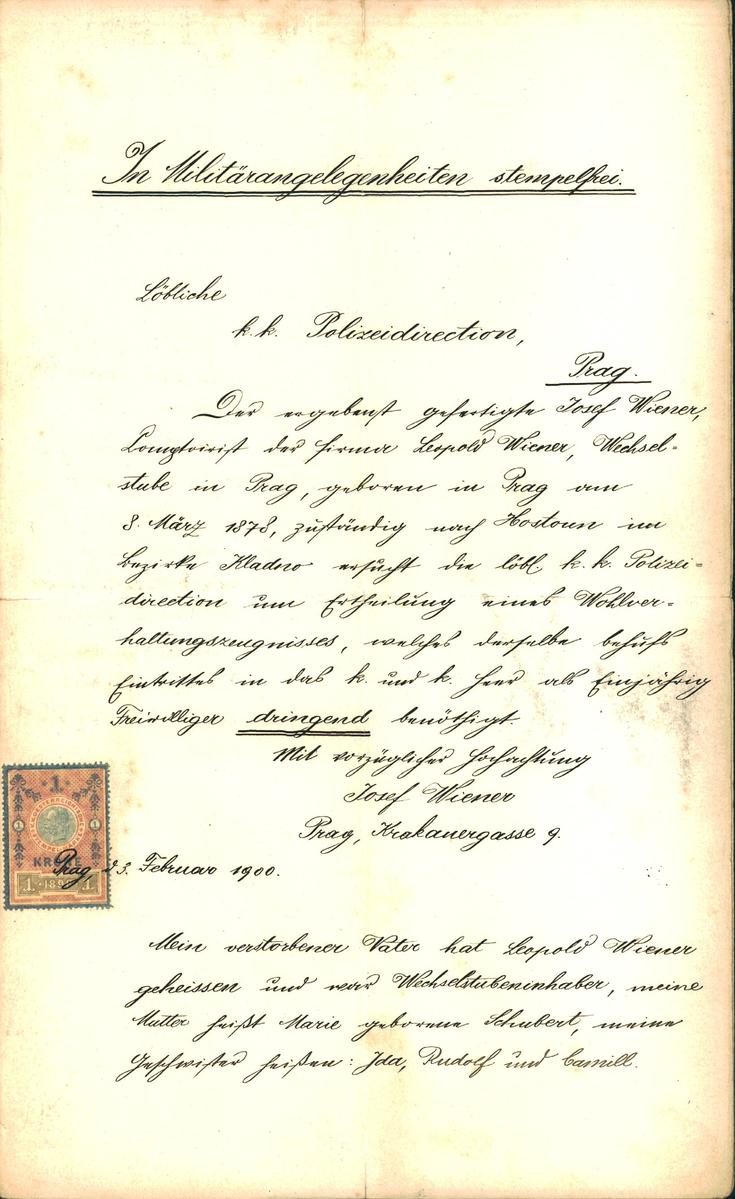 In Militärangelegenheiten stempelfrei.
Löbliche
k. k. Polizeidirection,
Prag.
Der ergebenst gefertigte Josef Wiener,
Comptoirist der Firma Leopold Wiener, Wechsel-
stube in Prag, geboren in Prag am
8. März 1878, zuständig nach Hostoun im
Bezirke Kladno ersucht die löbl. k. k. Polizei-
direction um Ertheilung eines Wohlver-
haltungszeugnisses, welches derselbe behufs
Eintrittes in das k. und k. Heer als Einjährig
Freiwilliger dringend benöthigt.
Mit vorzüglicher Hochachtung
Josef Wiener
Prag, Krakauergasse 9.
1
1 1
KRONE
1 189 1
Prag, 23. Februar 1900.
Mein verstorbener Vater hat Leopold Wiener
geheissen und war Wechselstubeninhaber, meine
Mutter heißt Marie geborene Schubert, meine
Geschwister heißen: Ida, Rudolf und Camill.